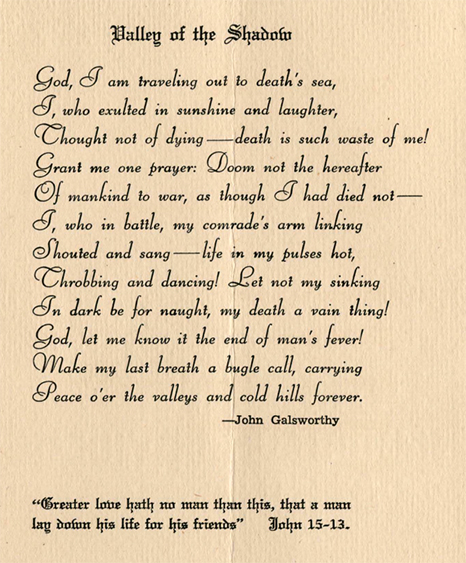 Valley of the Shadow
God, I am traveling out to death's sea,
I, who exulted in sunshine and laughter,
Thought not of dying—death is such waste of me!
Grant me one prayer: Doom not the hereafter
Of mankind to war, as though I had died not—
I, who in battle, my comrade's arm linking
Shouted and sang—life in my pulses hot,
Throbbing and dancing! Let not my sinking
In dark be for naught, my death a vain thing!
God, let me know it the end of man's fever!
Make my last breath a bugle call, carrying
Peace o'er the valleys and cold hills forever.
—John Galsworthy
“Greater love hath no man than this, that a man
lay down his life for his friends” John 15-13.